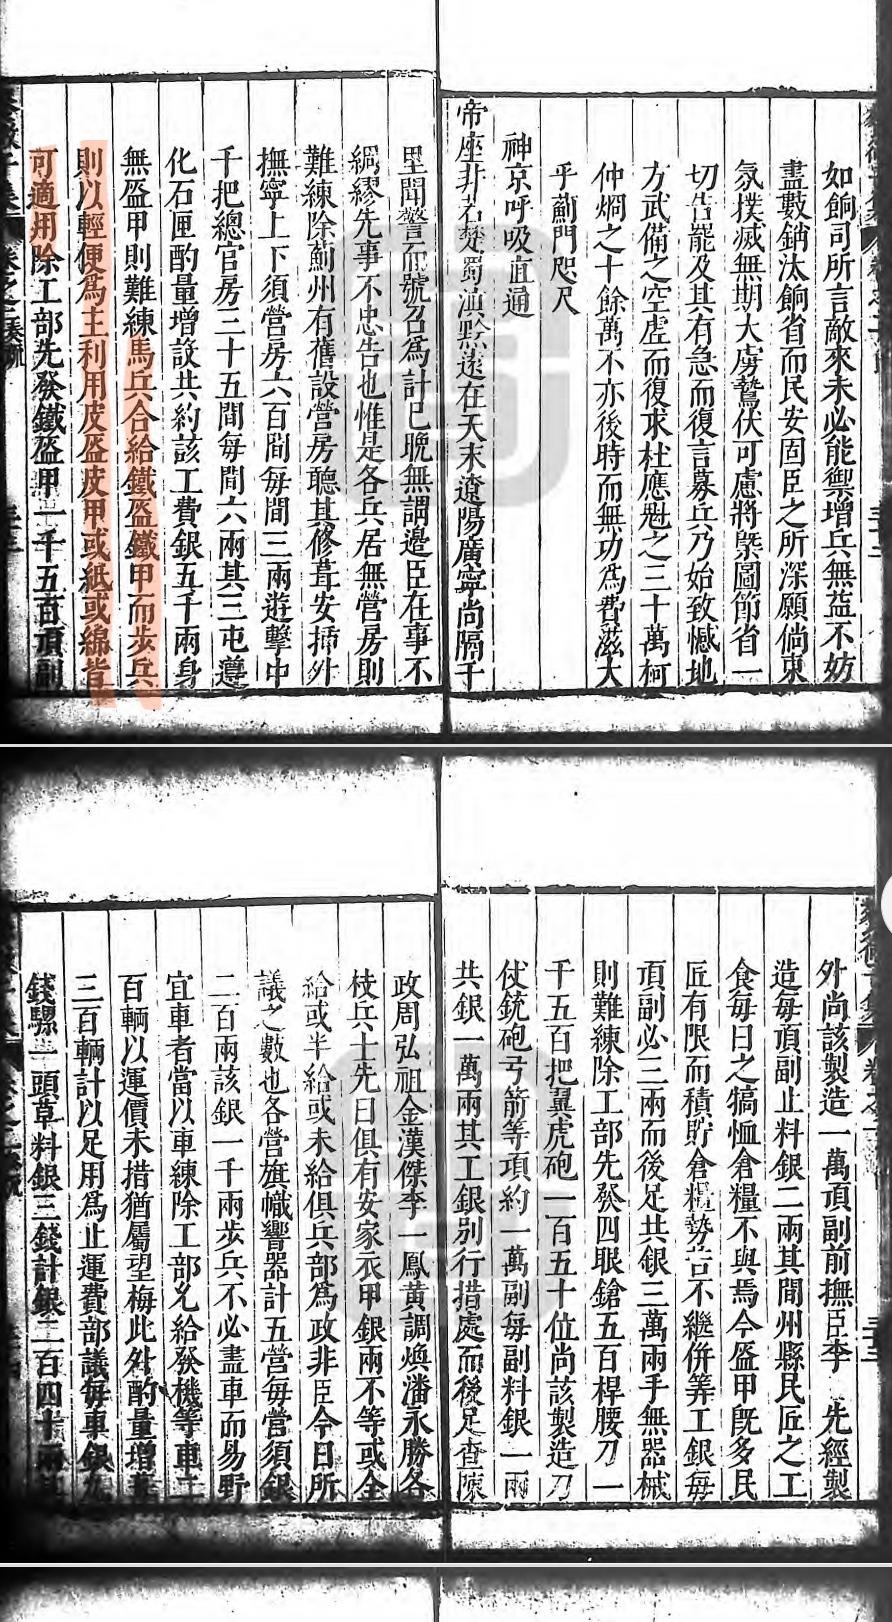 如餉司所言敵來未必能禦增兵無益不妨
盡數銷汰餉省而民安固臣之所深願倘東
氛撲滅無期大虜鷙伏可慮將槩圖節省一
切告罷及其有急而復言募兵乃始致憾地
方武備之空虛而復求杜應魁之三十萬柯
仲烱之十餘萬不亦後時而無功爲費滋大
乎薊門咫尺
神京呼吸直通
帝座非若楚蜀滇黔遠在天末遼陽廣寧尚隔千
里聞警而號召爲計已晚無謂邊臣在事不
綢繆先事不忠告也惟是各兵居無營房則
難練除薊州有舊設營房聽其修葺安插外
撫寧上下須營房六百間每間三兩遊擊中
千把總官房三十五間每間六兩其三屯遵
化石匣酌量增設共約該工費銀五千兩身
無盔甲則難練馬兵合給鐵盔鐵甲而步兵
則以輕便爲主利用皮盔皮甲或紙或綿皆
可適用除工部先發鐵盔甲一千五百頂副
外尚該製造一萬頂副前撫臣李 先經製
造每頂副止料銀二兩其間州縣民匠之工
食每日之犒恤倉糧不與焉今盔甲旣多民
匠有限而積貯倉糧勢告不繼併筭工銀每
頂副必三兩而後足共銀三萬兩手無器械
則難練除工部先發四眼鎗五百桿腰刀一
千五百把翼虎砲一百五十位尚該製造刀
仗銃砲弓箭等項約一萬副每副料銀一兩
共銀一萬兩其工銀別行措處而後足查陳
政周弘祖金漢傑李一鳳黃調煥潘永勝各
枝兵士先日俱有安家衣甲銀兩不等或全
給或半給或未給俱兵部爲政非臣今日所
議之數也各營旗幟響器計五營每營須銀
二百兩該銀一千兩步兵不必盡車而易野
宜車者當以車練除工部允給發機等車二
百輛以運價未措猶屬望梅此外酌量增造
三百輛計以足用爲止運費部議每車銀九
錢騾一頭草料銀三錢計銀二百四十兩